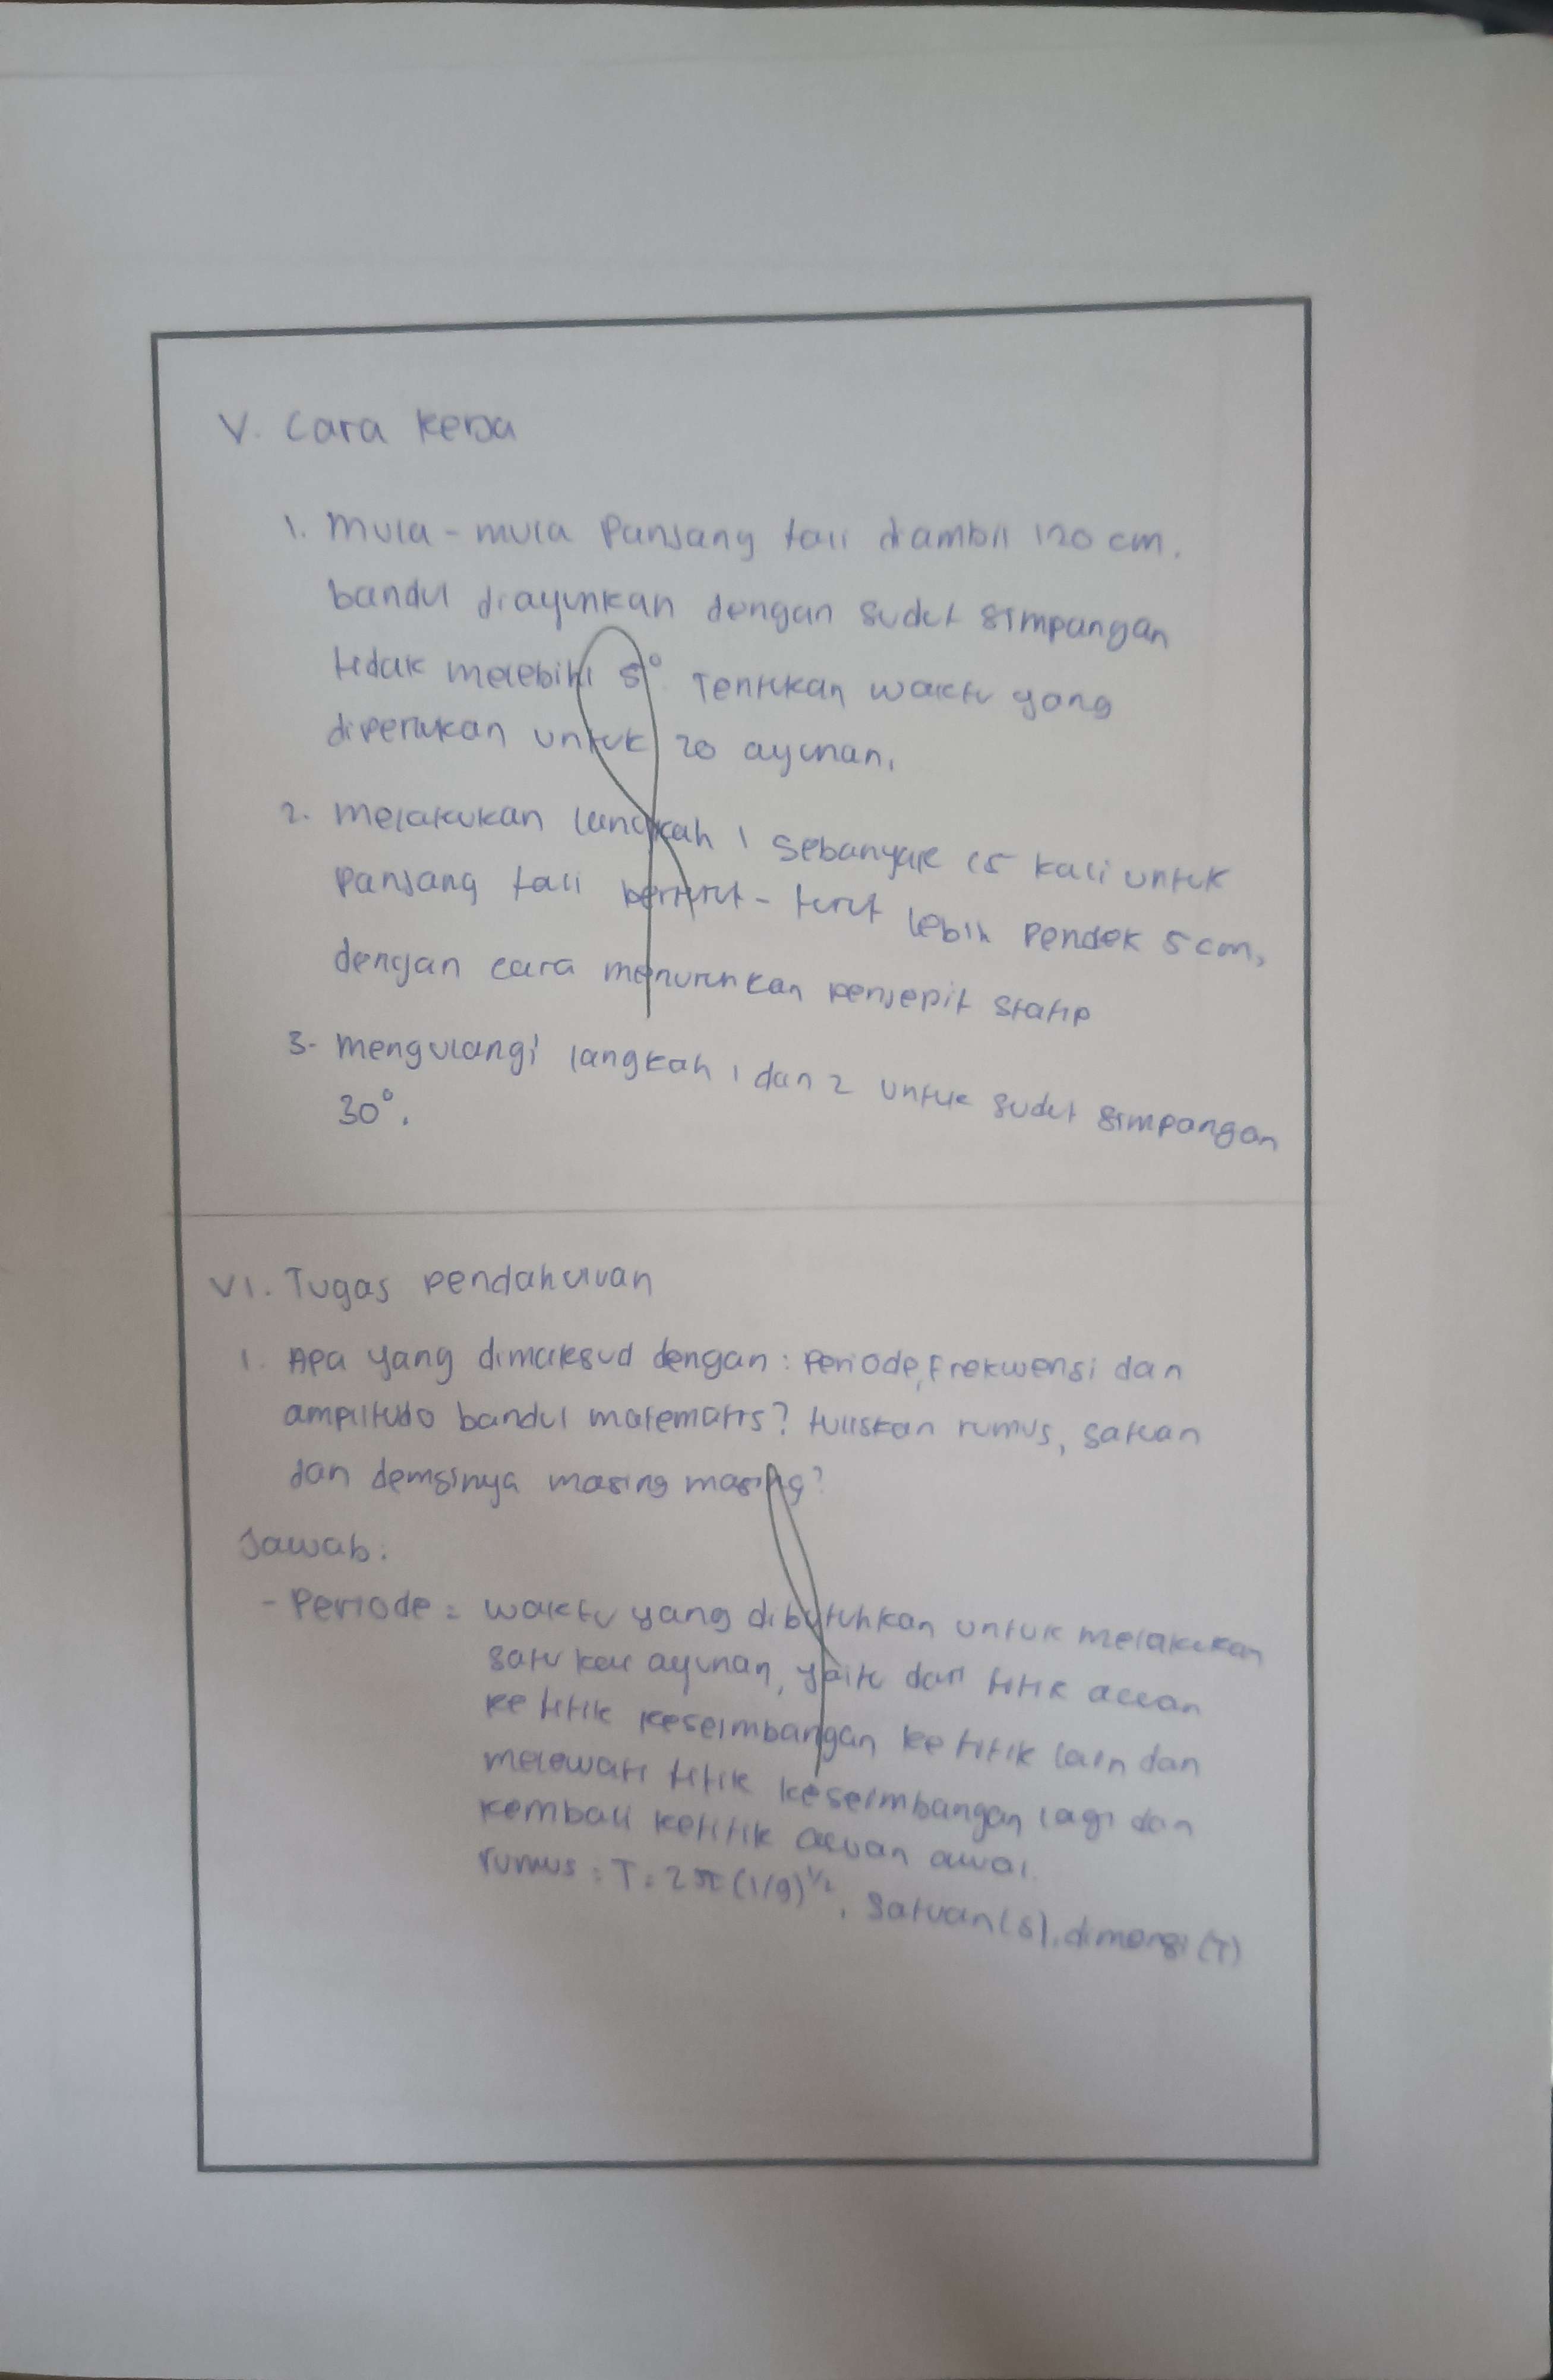 V. Cara Kerja
1. Mula-mula Panjang tali diambil 120 cm.
bandul diayunkan dengan sudut simpangan
tidak melebihi 5° Tentukan waktu yang
diperlukan untuk 20 ayunan,
2. Melakukan langkah 1 sebanyak 15 kali untuk
Panjang tali berturut-turut lebih pendek 5 cm,
dengan cara menurunkan penjepit statip
3. Mengulangi langkah 1 dan 2 untuk sudut simpangan
30°.
VI. Tugas pendahuluan
1. Apa yang dimaksud dengan: periode, frekwensi dan
amplitudo bandul matematis? tuliskan rumus, satuan
dan demsinya masing masing?
Jawab:
- Periode = waktu yang dibutuhkan untuk melakukan
satu kali ayunan, yaitu dari titik acuan
ke titik keseimbangan ke titik lain dan
melewati titik keseimbangan lagi dan
kembali ketitik acuan awal.
rumus: T = 2π (l/g)^1/2, satuan (s), dimensi (T)